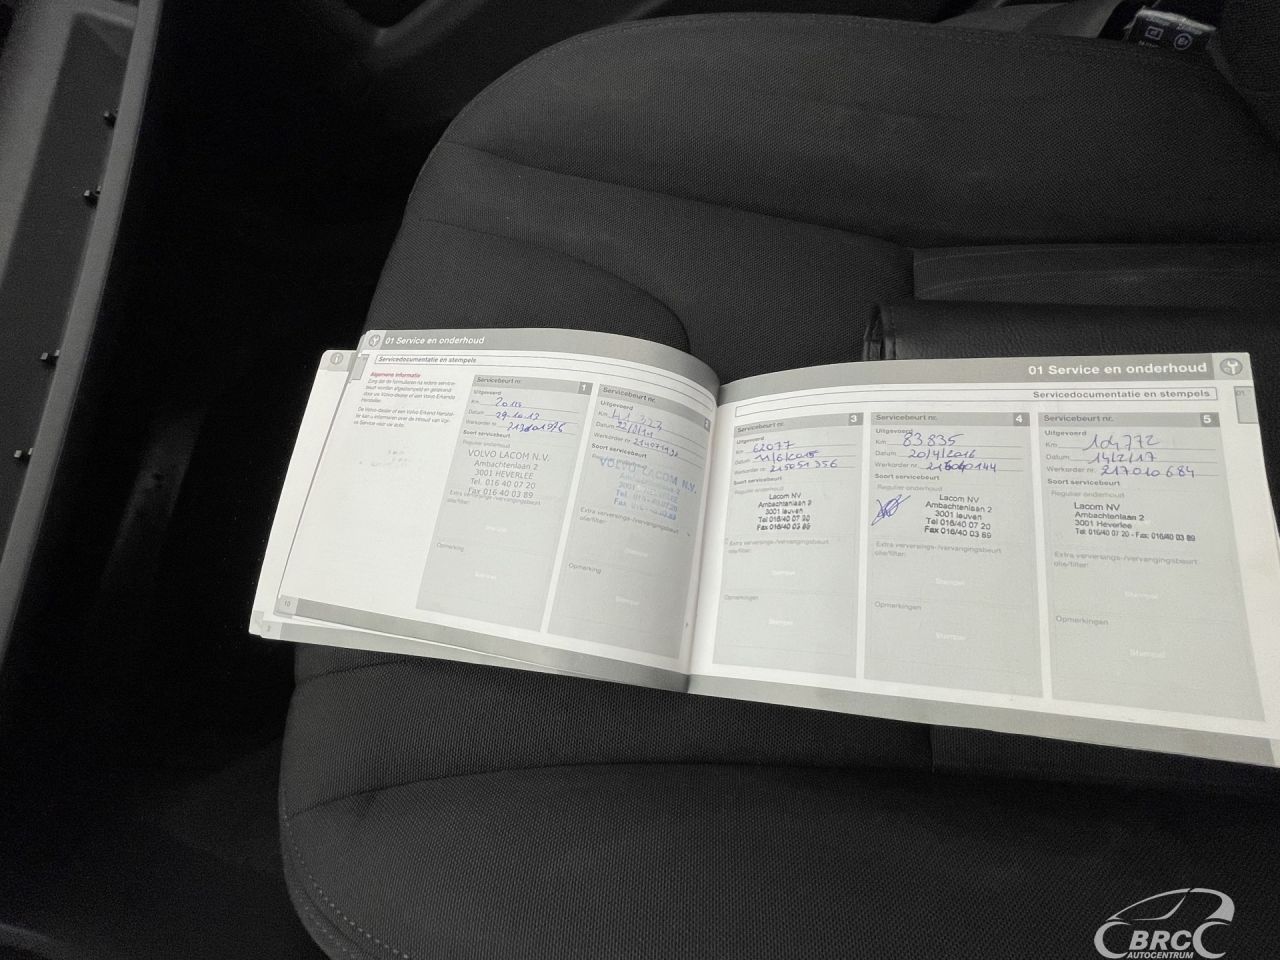 01 Service en onderhoud
Servicedocumentatie en stempels
Algemene informatie
Servicebeurt nr. 1
Uitgevoerd
Km
Datum 29.10.13
Werkorder nr.
Soort servicebeurt
Regulier onderhoud
VOLVO LACOM N.V.
Ambachtenlaan 2
3001 HEVERLEE
Tel. 016 40 07 20
Fax 016 40 03 89
Extra verversings-/vervangingsbeurt
olie/filter:
Opmerking
Stempel
10
Servicebeurt nr. 2
Uitgevoerd
Km
Datum
Werkorder nr.
Soort servicebeurt
VOLVO LACOM N.V.
Extra verversings-/vervangingsbeurt
olie/filter:
Opmerking
Stempel
01 Service en onderhoud
Servicedocumentatie en stempels
01
Servicebeurt nr. 3
Uitgevoerd
Km 62077
Datum 11/6/2015
Werkorder nr. 215051356
Soort servicebeurt
Regulier onderhoud
Lacom NV
Ambachtenlaan 2
3001 leuven
Tel 016/40 07 20
Fax 016/40 03 89
Extra verversings-/vervangingsbeurt
olie/filter:
Stempel
Opmerkingen
Stempel
Servicebeurt nr. 4
Uitgevoerd
Km 83835
Datum 20/4/2016
Werkorder nr.
Soort servicebeurt
Regulier onderhoud
Lacom NV
Ambachtenlaan 2
3001 leuven
Tel 016/40 07 20
Fax 016/40 03 89
Extra verversings-/vervangingsbeurt
olie/filter:
Stempel
Opmerkingen
Stempel
Servicebeurt nr. 5
Uitgevoerd
Km 104772
Datum 14/2/17
Werkorder nr. 217020684
Soort servicebeurt
Regulier onderhoud
Lacom NV
Ambachtenlaan 2
3001 Heverlee
Tel: 016/40 07 20 - Fax: 016/40 03 89
Extra verversings-/vervangingsbeurt
olie/filter:
Stempel
Opmerkingen
Stempel
BRC
AUTOCENTRUM